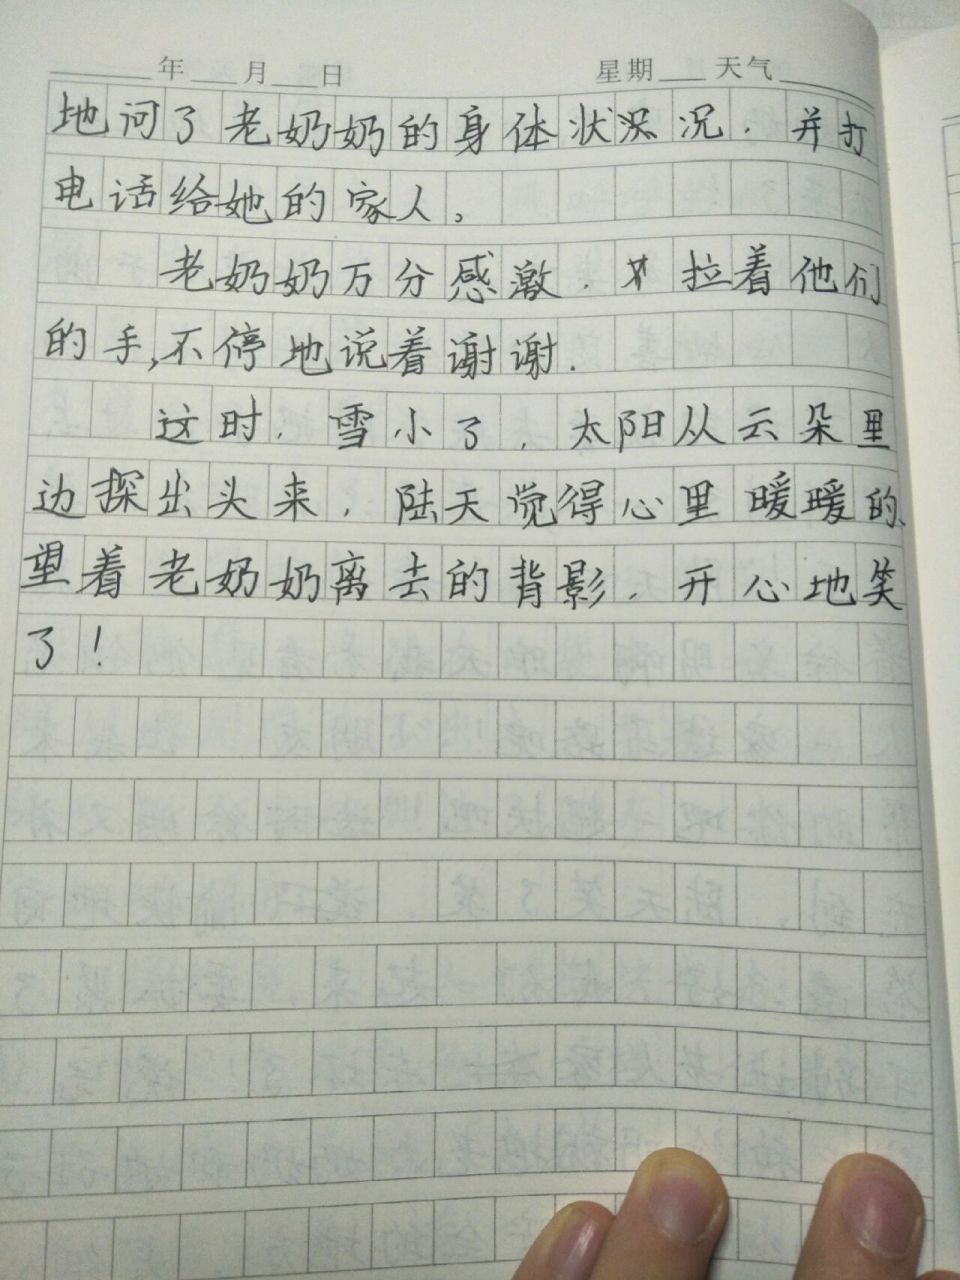 年 月 日 星期 天气
地问了老奶奶的身体状况，并打
电话给她的家人。
老奶奶万分感激，拉着他们
的手,不停地说着谢谢.
这时，雪小了，太阳从云朵里
边探出头来，陆天觉得心里暖暖的、
望着老奶奶离去的背影，开心地笑
了！